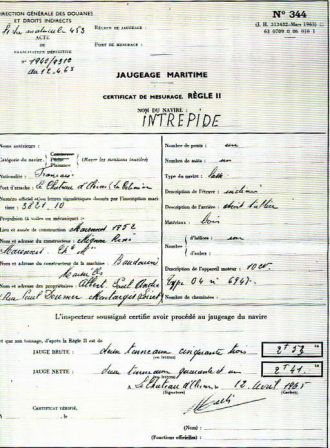 DIRECTION GÉNÉRALE DES DOUANES
ET DROITS INDIRECTS
N° 344
(J. H. 313432-Mars 1963)
RÉGION DE JAUGEAGE :
ACTE
DE
FRANCISATION DÉFINITIVE
PORT DE MESURAGE :
JAUGEAGE MARITIME
CERTIFICAT DE MESURAGE, RÈGLE II
NOM DU NAVIRE :
INTREPIDE
Noms antérieurs :
Catégorie du navire
Commerce
Pêche
Plaisance
(Rayer les mentions inutiles)
Nationalité : Français
Port d'attache : Le Chateau d'Oleron
Numéro officiel ou lettres signalétiques données par l'inscription maritime : 3821.10
Propulsion (à voiles ou mécanique) :
Lieu et année de construction 1952
Nom et adresse du constructeur
Nom et adresse du constructeur de la machine : Baudouin
Marseille
Nom et adresse du propriétaire Albert
Nombre de ponts : un
Nombre de mâts : un
Type du navire :
Description de l'étrave : inclinée
Description de l'arrière : droit
Matériaux : Bois
Nombre
d'hélices : un
d'arbres :
Description de l'appareil moteur :
Type
Nombre de cheminées :
L'inspecteur soussigné certifie avoir procédé au jaugeage du navire
et que son tonnage, d'après la Règle II est de
JAUGE BRUTE : deux tonneaux cinquante trois
(en lettres)
2 Tx 53
JAUGE NETTE : deux tonneaux quarante et un
(en lettres)
2 Tx 41
Le Chateau d'Oleron 12 Avril 1965
(Signature)
(Cachet)
CERTIFICAT VÉRIFIÉ,
(Nom) :
(Fonctions officielles) :